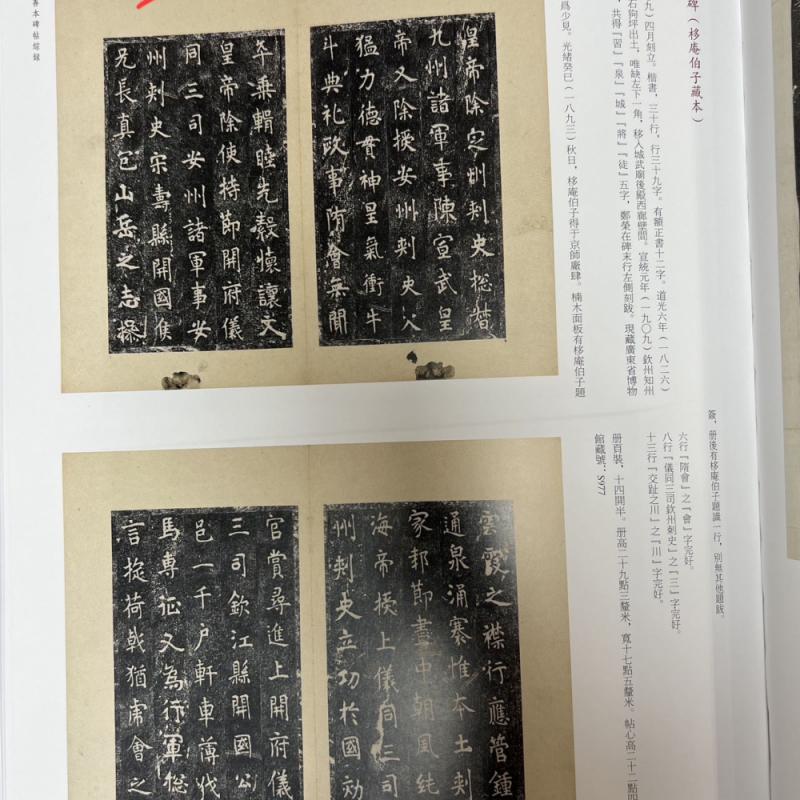 碑（栘庵伯子藏本）
九）四月刻立。楷書，三十行，行三十九字。有額正書十二字。道光六年（一八二六）
石狗坪出土，唯缺左下一角，移入城武廟後殿西廊壁間。宣統元年（一九〇九）欽州知州
，共得『習』『泉』『城』『將』『徒』五字，鄭榮在碑末行左側刻跋。現藏廣東省博物
爲少見。光緒癸巳（一八九三）秋日，栘庵伯子得于京師廠肆。楠木面板有栘庵伯子題
簽，册後有栘庵伯子題識一行，别無其他題跋。
六行『隋會』之『會』字完好。
八行『儀同三司欽州刺史』之『三』字完好。
十三行『交趾之川』之『川』字完好。
册頁裝，十四開半。册高二十九點三釐米，寬十七點五釐米。帖心高二十二點四
館藏號：S977
善本碑帖綜録
皇帝除定州刺史揔督
九州諸軍事陳宣武皇
帝又除授安州刺史父
猛力德貫神皇氣衝牛
斗典礼政事隋會無聞
年乘輯睦先縠懷讓文
皇帝除使持節開府儀
同三司安州諸軍事安
州刺史宋壽縣開國侯
兄長真包山岳之志操
雲霞之襟行應管鍾
通泉涌寨惟本土刺
家邦節盡中朝風純
海帝授上儀同三司
州刺史立功於國効
官賞尋進上開府儀
三司欽江縣開國公
邑一千户軒車薄伐
馬專征又為行軍揔
言掟荷戟猶肅會之